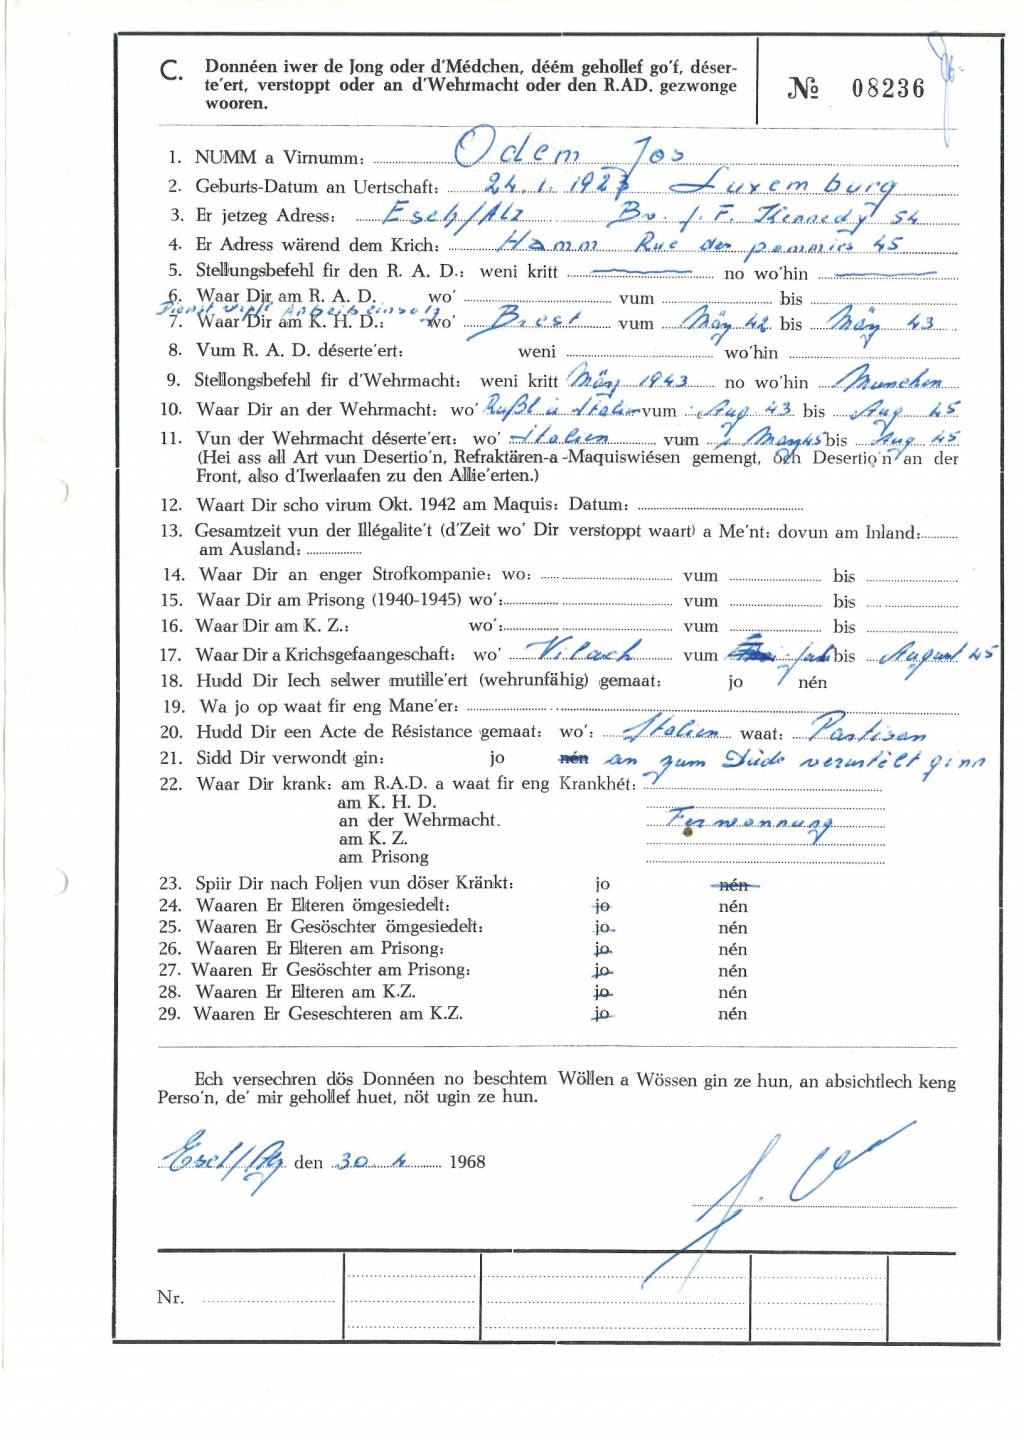 C. Donnéen iwer de Jong oder d'Médchen, déém gehollef go'f, déser-
te'ert, verstoppt oder an d'Wehrmacht oder den R.AD. gezwonge
wooren.
№ 08236
1. NUMM a Virnumm: Odem Jos
2. Geburts-Datum an Uertschaft: 24.1.1923 Luxemburg
3. Er jetzeg Adress: Esch/Alz Bv. J. F. Kennedy 54
4. Er Adress wärend dem Krich: Hamm Rue des pommiés 45
5. Stellungsbefehl fir den R. A. D.: weni kritt — no wo'hin —
6. Waar Dir am R. A. D. wo' vum bis
Dienst Arbeitseinsatz
7. Waar Dir am K. H. D.: wo' Brest vum Mäŗz 42 bis März 43
8. Vum R. A. D. déserte'ert: weni wo'hin
9. Stellongsbefehl fir d'Wehrmacht: weni kritt März 1943 no wo'hin Munchen
10. Waar Dir an der Wehrmacht: wo' Rußl u Italien vum Aug 43 bis Aug 45
11. Vun der Wehrmacht déserte'ert: wo' Italien vum May 45 bis Aug 45
(Hei ass all Art vun Desertio'n, Refraktären-a-Maquiswiésen gemengt, och Desertio'n an der
Front, also d'Iwerlaafen zu den Allie'erten.)
12. Waart Dir scho virum Okt. 1942 am Maquis: Datum:
13. Gesamtzeit vun der Illégalite't (d'Zeit wo' Dir verstoppt waart) a Me'nt: dovun am Inland:
am Ausland:
14. Waar Dir an enger Strofkompanie: wo: vum bis
15. Waar Dir am Prisong (1940-1945) wo': vum bis
16. Waar Dir am K. Z.: wo': vum bis
17. Waar Dir a Krichsgefaangeschaft: wo' Vilach vum bis August 45
18. Hudd Dir Iech selwer mutille'ert (wehrunfähig) gemaat: jo nén
19. Wa jo op waat fir eng Mane'er:
20. Hudd Dir een Acte de Résistance gemaat: wo': Italien waat: Partisan
21. Sidd Dir verwondt gin: jo nén an zum Dude verurtelt ginn
22. Waar Dir krank: am R.A.D. a waat fir eng Krankhét:
am K. H. D.
an der Wehrmacht. Ferwonnung
am K. Z.
am Prisong
23. Spiir Dir nach Foljen vun döser Kränkt: jo nén
24. Waaren Er Elteren ömgesiedelt: jo nén
25. Waaren Er Gesöschter ömgesiedelt: jo nén
26. Waaren Er Elteren am Prisong: jo nén
27. Waaren Er Gesöschter am Prisong: jo nén
28. Waaren Er Elteren am K.Z. jo nén
29. Waaren Er Geseschteren am K.Z. jo nén
Ech versechren dös Donnéen no beschtem Wöllen a Wössen gin ze hun, an absichtlech keng
Perso'n, de' mir gehollef huet, nöt ugin ze hun.
Esch/Alz den 30.4 1968
J. O
Nr.